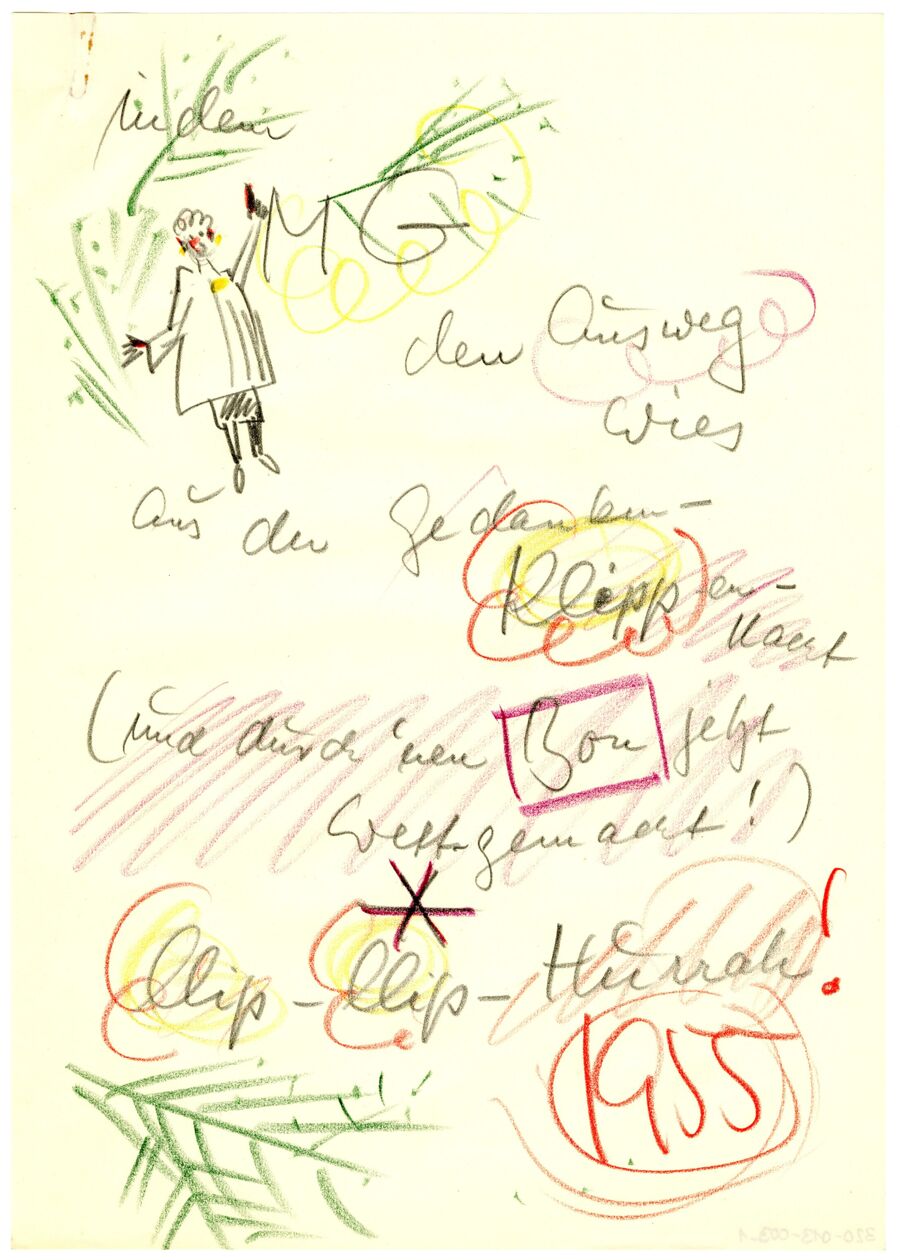 in dem
MG
den Ausweg
wies
aus der Gedanken-
Klippen-
Nacht
(und durch 'nen Bon jetzt
wett-gemacht!)
Clip - Clip - Hurrah!
1955
320-013-003-1